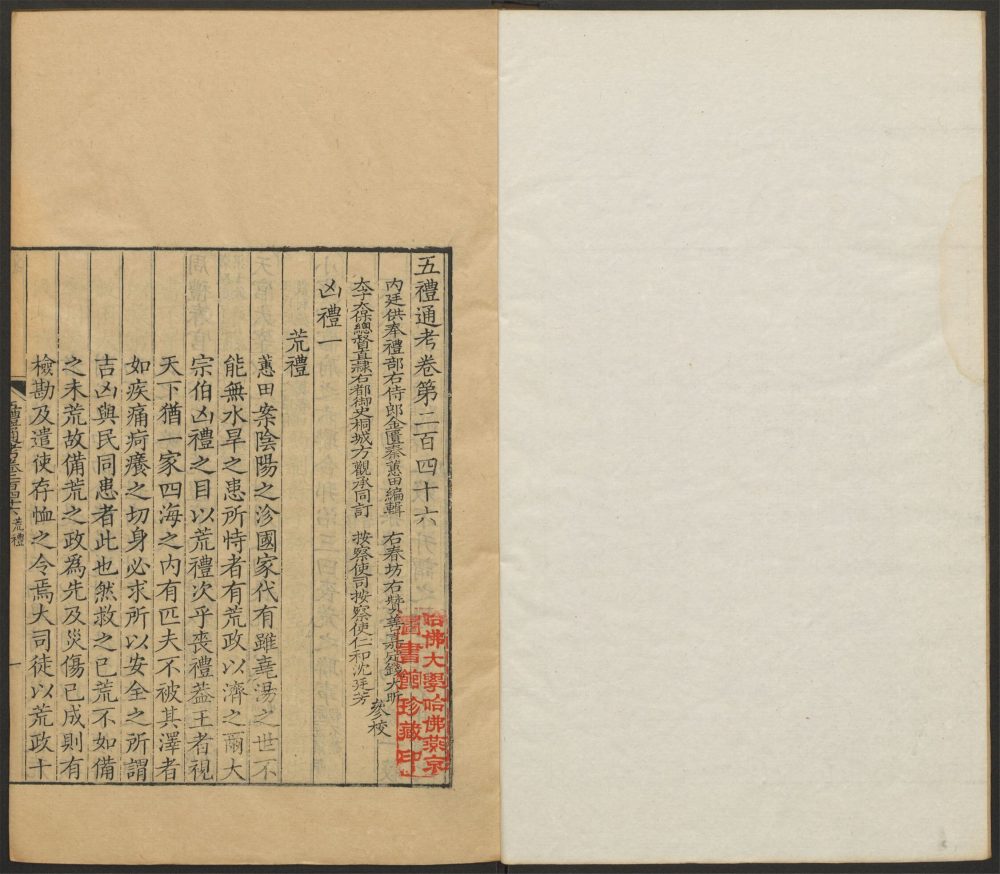 五禮通考卷第二百四十六
內廷供奉禮部右侍郎金匱秦蕙田編輯 右春坊右贊善嘉定錢大昕
太子太保總督直隸右都御史桐城方觀承同訂 按察使司按察使仁和沈廷芳
參校
凶禮一
荒禮
蕙田案陰陽之沴國家代有雖堯湯之世不
能無水旱之患所恃者有荒政以濟之爾大
宗伯凶禮之目以荒禮次乎喪禮葢王者視
天下猶一家四海之內有匹夫不被其澤者
如疾痛疴癢之切身必求所以安全之所謂
吉凶與民同患者此也然救之已荒不如備
之未荒故備荒之政爲先及災傷已成則有
檢勘及遣使存恤之令焉大司徒以荒政十
五禮通考卷二百四十六 荒禮
一
哈佛大學哈佛燕京
圖書館珍藏印